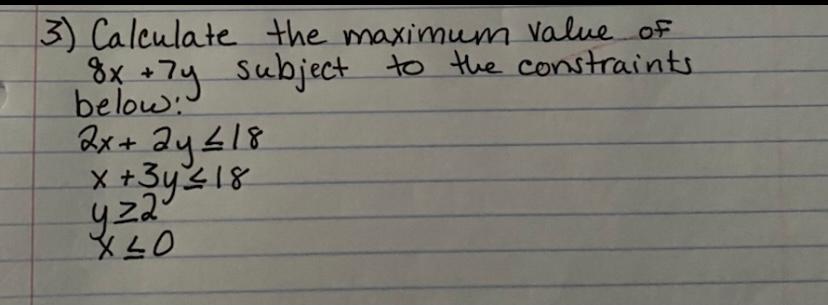 3) Calculate the maximum value of
8x + 7y subject to the constraints
below:
2x + 2y ≤ 18
x + 3y ≤ 18
y ≥ 2
x ≤ 0